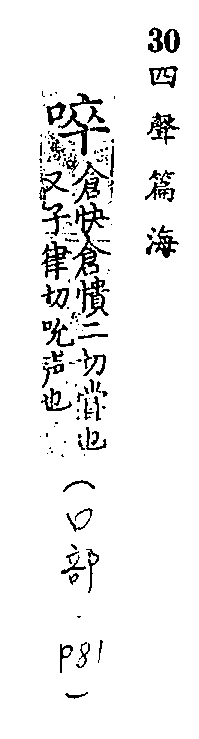 30四聲篇海
啐倉快倉憒二切嘗也
又子律切吮声也
(口部.P81)